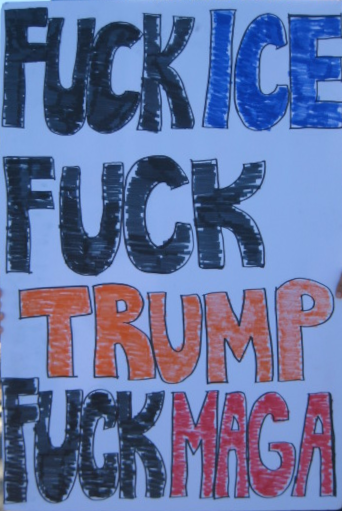 FUCK ICE
FUCK
TRUMP
FUCK MAGA